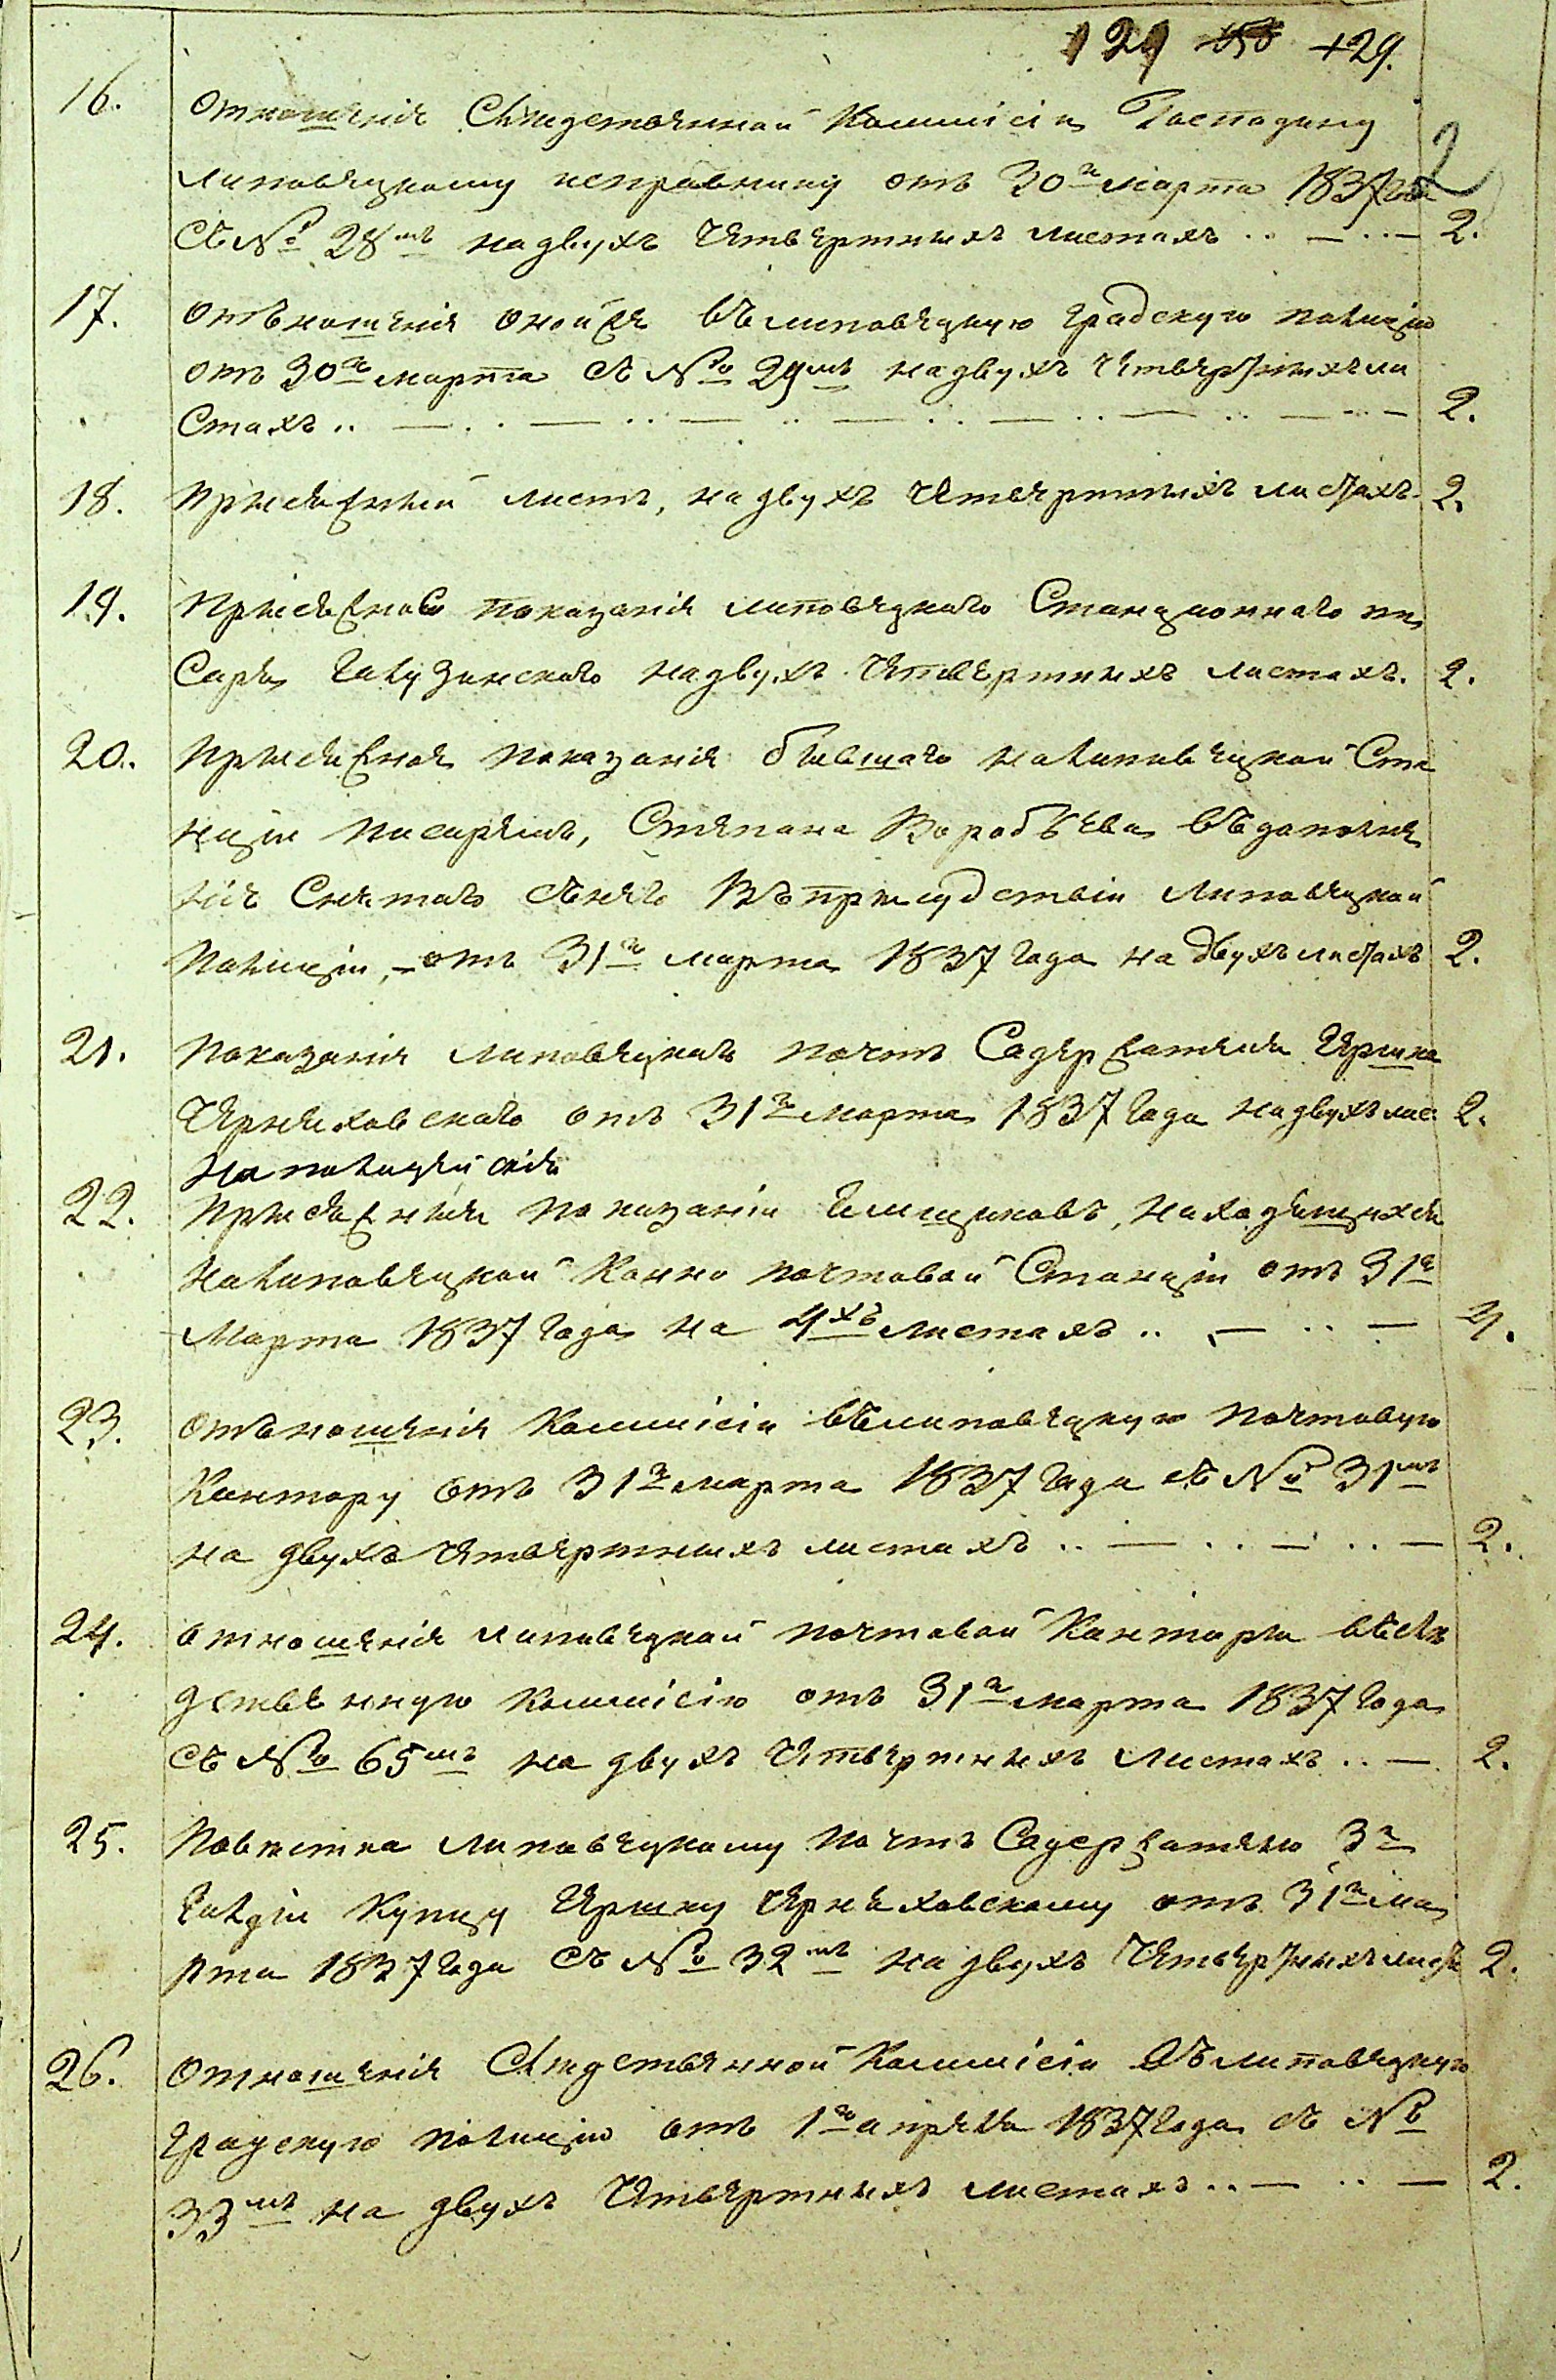 129 +29.
16. Отношенія Следственной Коммісіи Господину 2
липовецкому исправнику отъ 30го марта 1837 года
съ № 28мъ на двухъ четвертныхъ листахъ .. — .. — 2.
17. Отъношенія оной же въ липовецкую градскую полицію
отъ 30го марта съ № 29мъ на двухъ четвертныхъ ли
стахъ .. — .. — .. — .. — .. — .. — .. — 2.
18. Присяжный листъ, на двухъ четвертныхъ листахъ. 2.
19. Присяжного показанія липовецкаго Станціоннаго пи
саря на двухъ четвертныхъ листахъ. 2.
20. Присяжная показанія бывшаго на липовецкой Ста
нціи писаремъ, Степана Воробьева въ дополне
ніе снятаго съ него въ присудствіи липовецкой
полиціи, – отъ 31го марта 1837 года на двухъ листахъ 2.
21. Показанія липовецкаго почтъ Содержателя Гершка
Черняховскаго отъ 31го марта 1837 года на двухъ лис 2.
22. Присяжныя показаніи ямщиковъ, находящихся
на липовецкой Конно почтовой Станціи отъ 31го
Марта 1837 года на 4хъ листахъ .. — .. — 4.
23. Отъношенія Коммісіи въ липовецкую почтовую
Контору отъ 31го марта 1837 года съ № 31мъ
на двухъ четвертныхъ листахъ .. — .. — .. — 2.
24. Отношенія липовецкой почтовой Конторы въ слѣ
дственную коммісію отъ 31го марта 1837 года
съ № 65мъ на двухъ четвертныхъ листахъ .. — 2.
25. Повестка липовецкому почтъ Содержателю 3й
гилдіи купцу Гершку Черняховскому отъ 31го ма
рта 1837 года съ № 32мъ на двухъ четвертныхъ листа 2.
26. Отношенія Следственной Коммісіи въ липовецкую
градскую полицію отъ 1го апреля 1837 года съ №
33мъ на двухъ четвертныхъ листахъ .. — .. — 2.